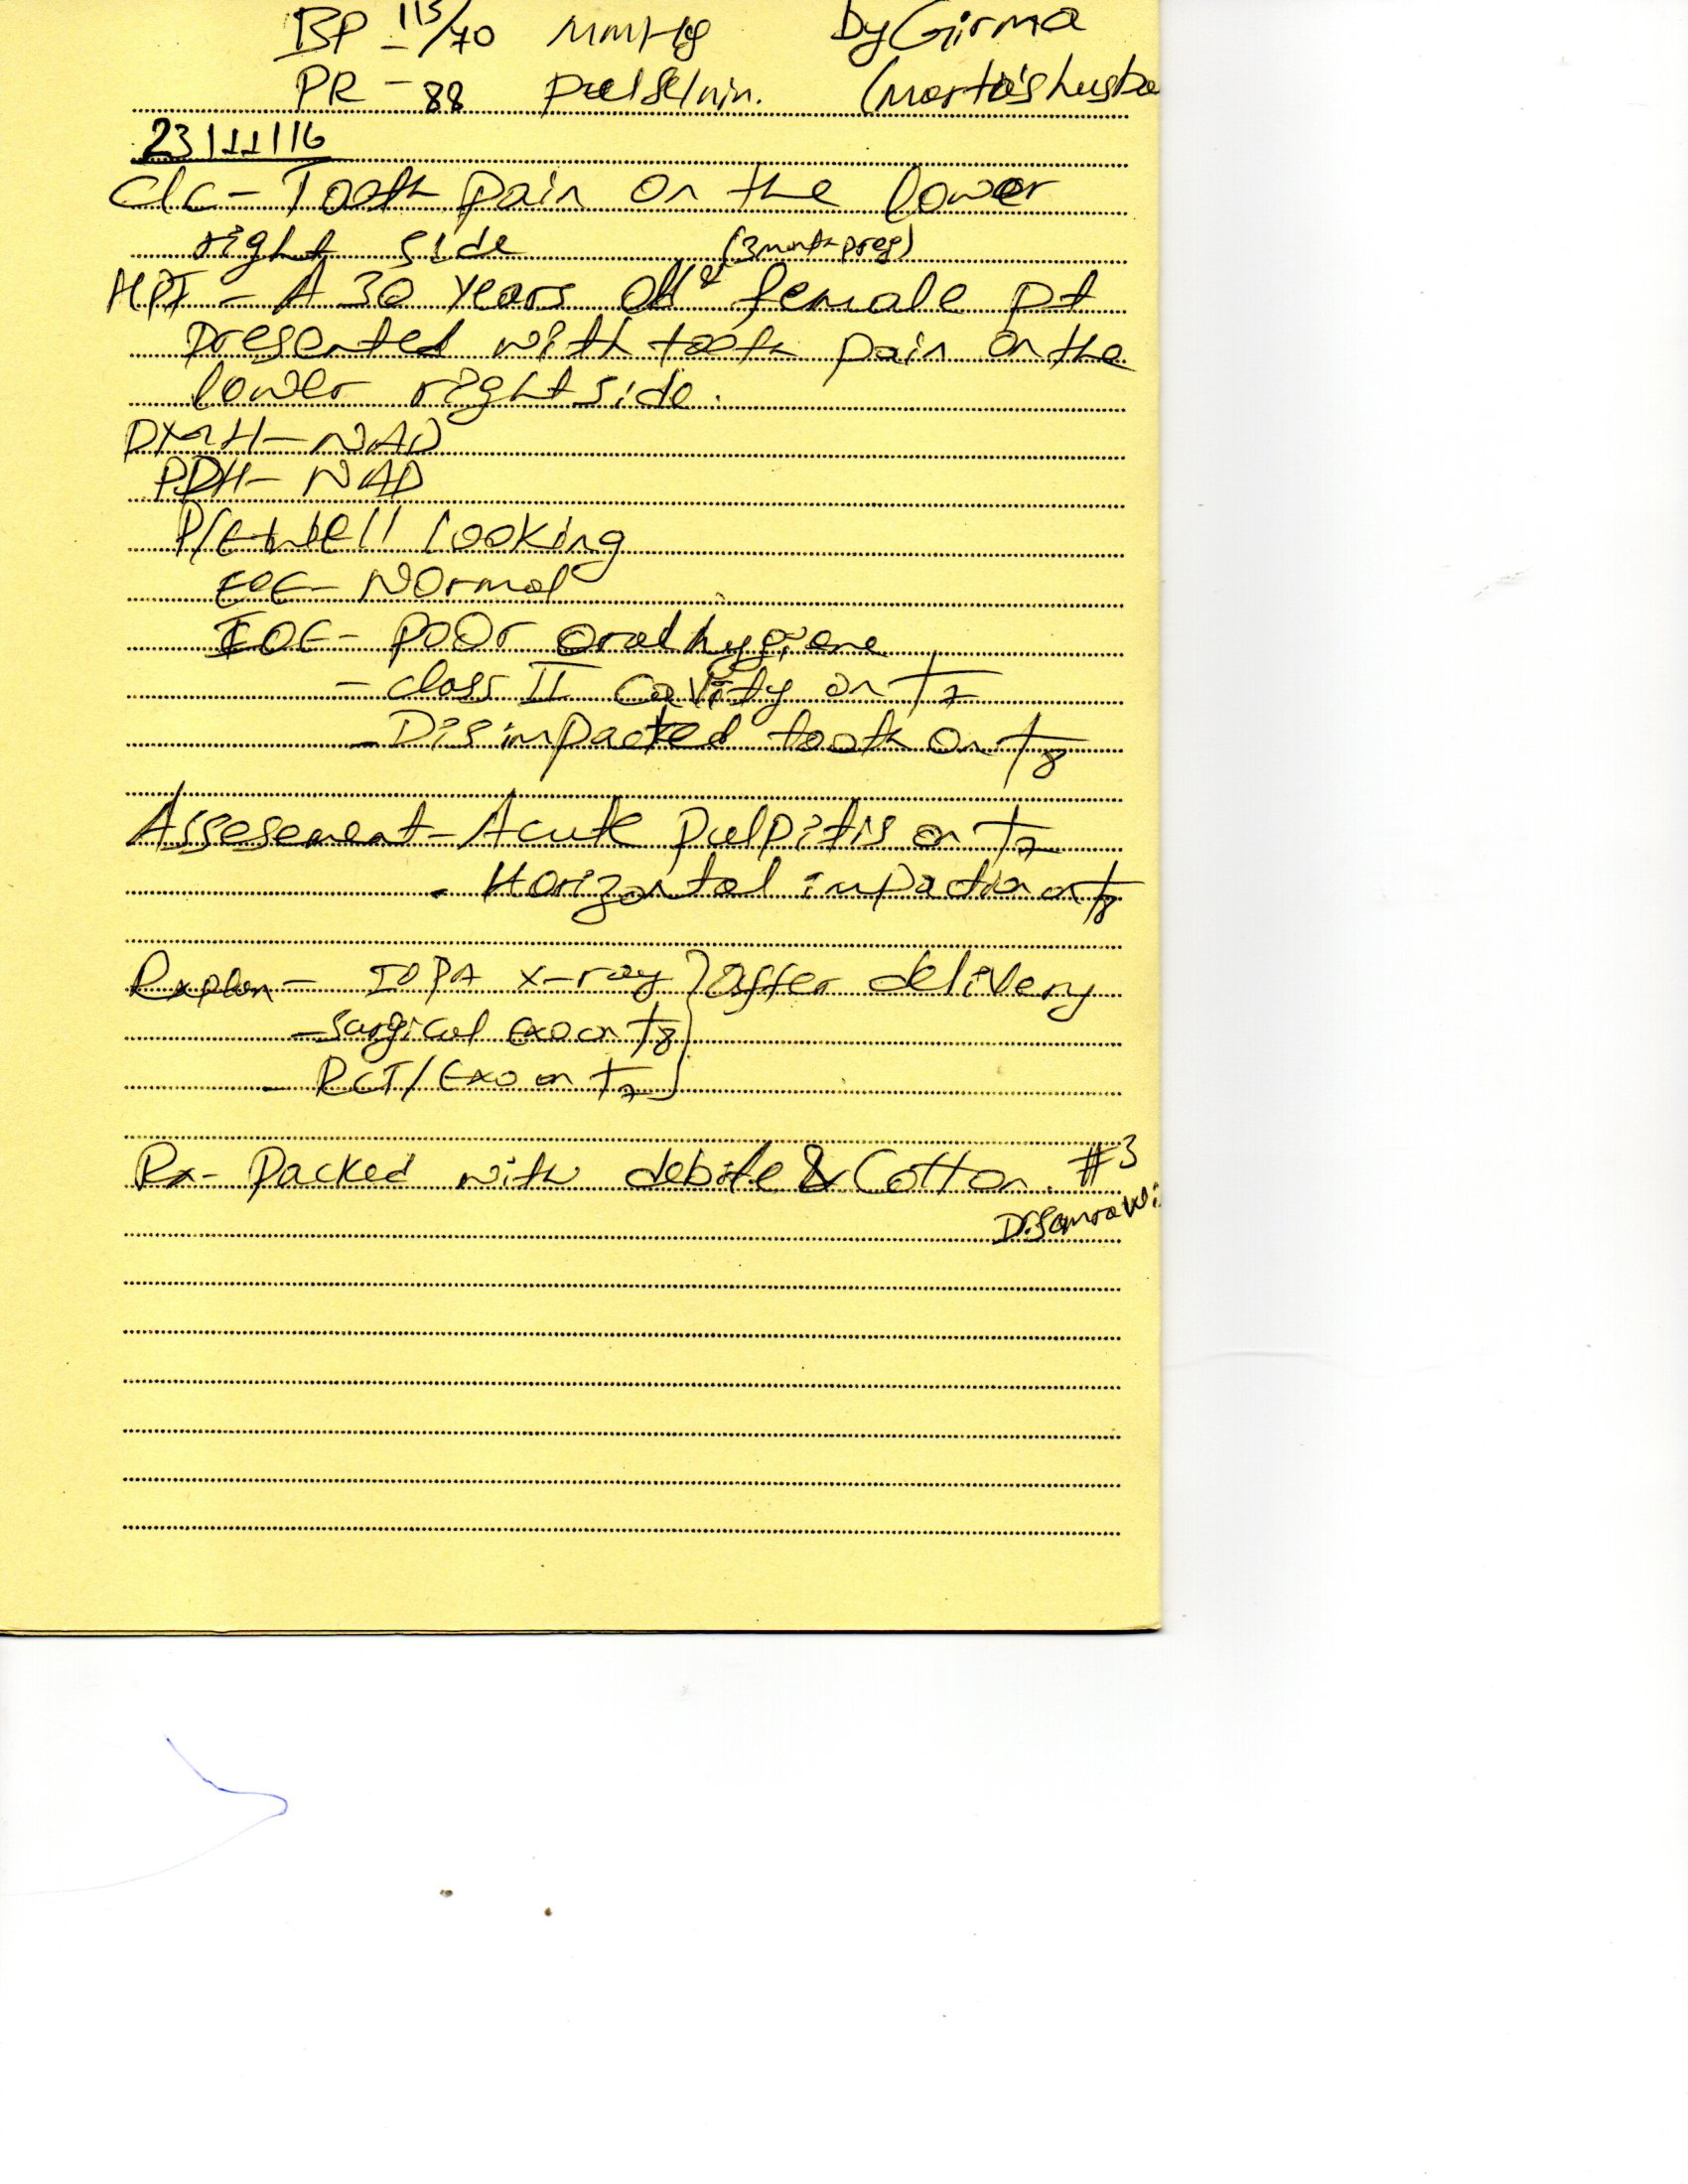 BP - 115/70 mmHg By Girma
PR - 88 pulse/min. (Marta's husba
23/11/16
C/c - Tooth pain on the lower
right side (3 month preg)
HPI - A 30 years old female pt
presented with tooth pain on the
lower right side.
PMH - NAD
PDH - NAD
P/E - well looking
EOE - Normal
IOE - poor oral hygiene
- class II cavity on T7
- Disimpacted tooth on T8
Assesement - Acute pulpitis on T7
- Horizontal impaction on T8
Rx plan - IOPA x-ray } after delivery
- surgical exo on T8
- RCT/Exo on T7
Rx - Packed with debite & Cotton. #3
Dr. Samrawi